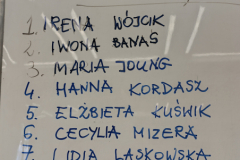 1. IRENA WÓJCIK
2. IWONA BANAŚ
3. MARIA JOUNG
4. HANNA KORDASZ
5. ELŻBIETA KUŚWIK
6. CECYLIA MIZERA
7 LIDIA LASKOWSKA